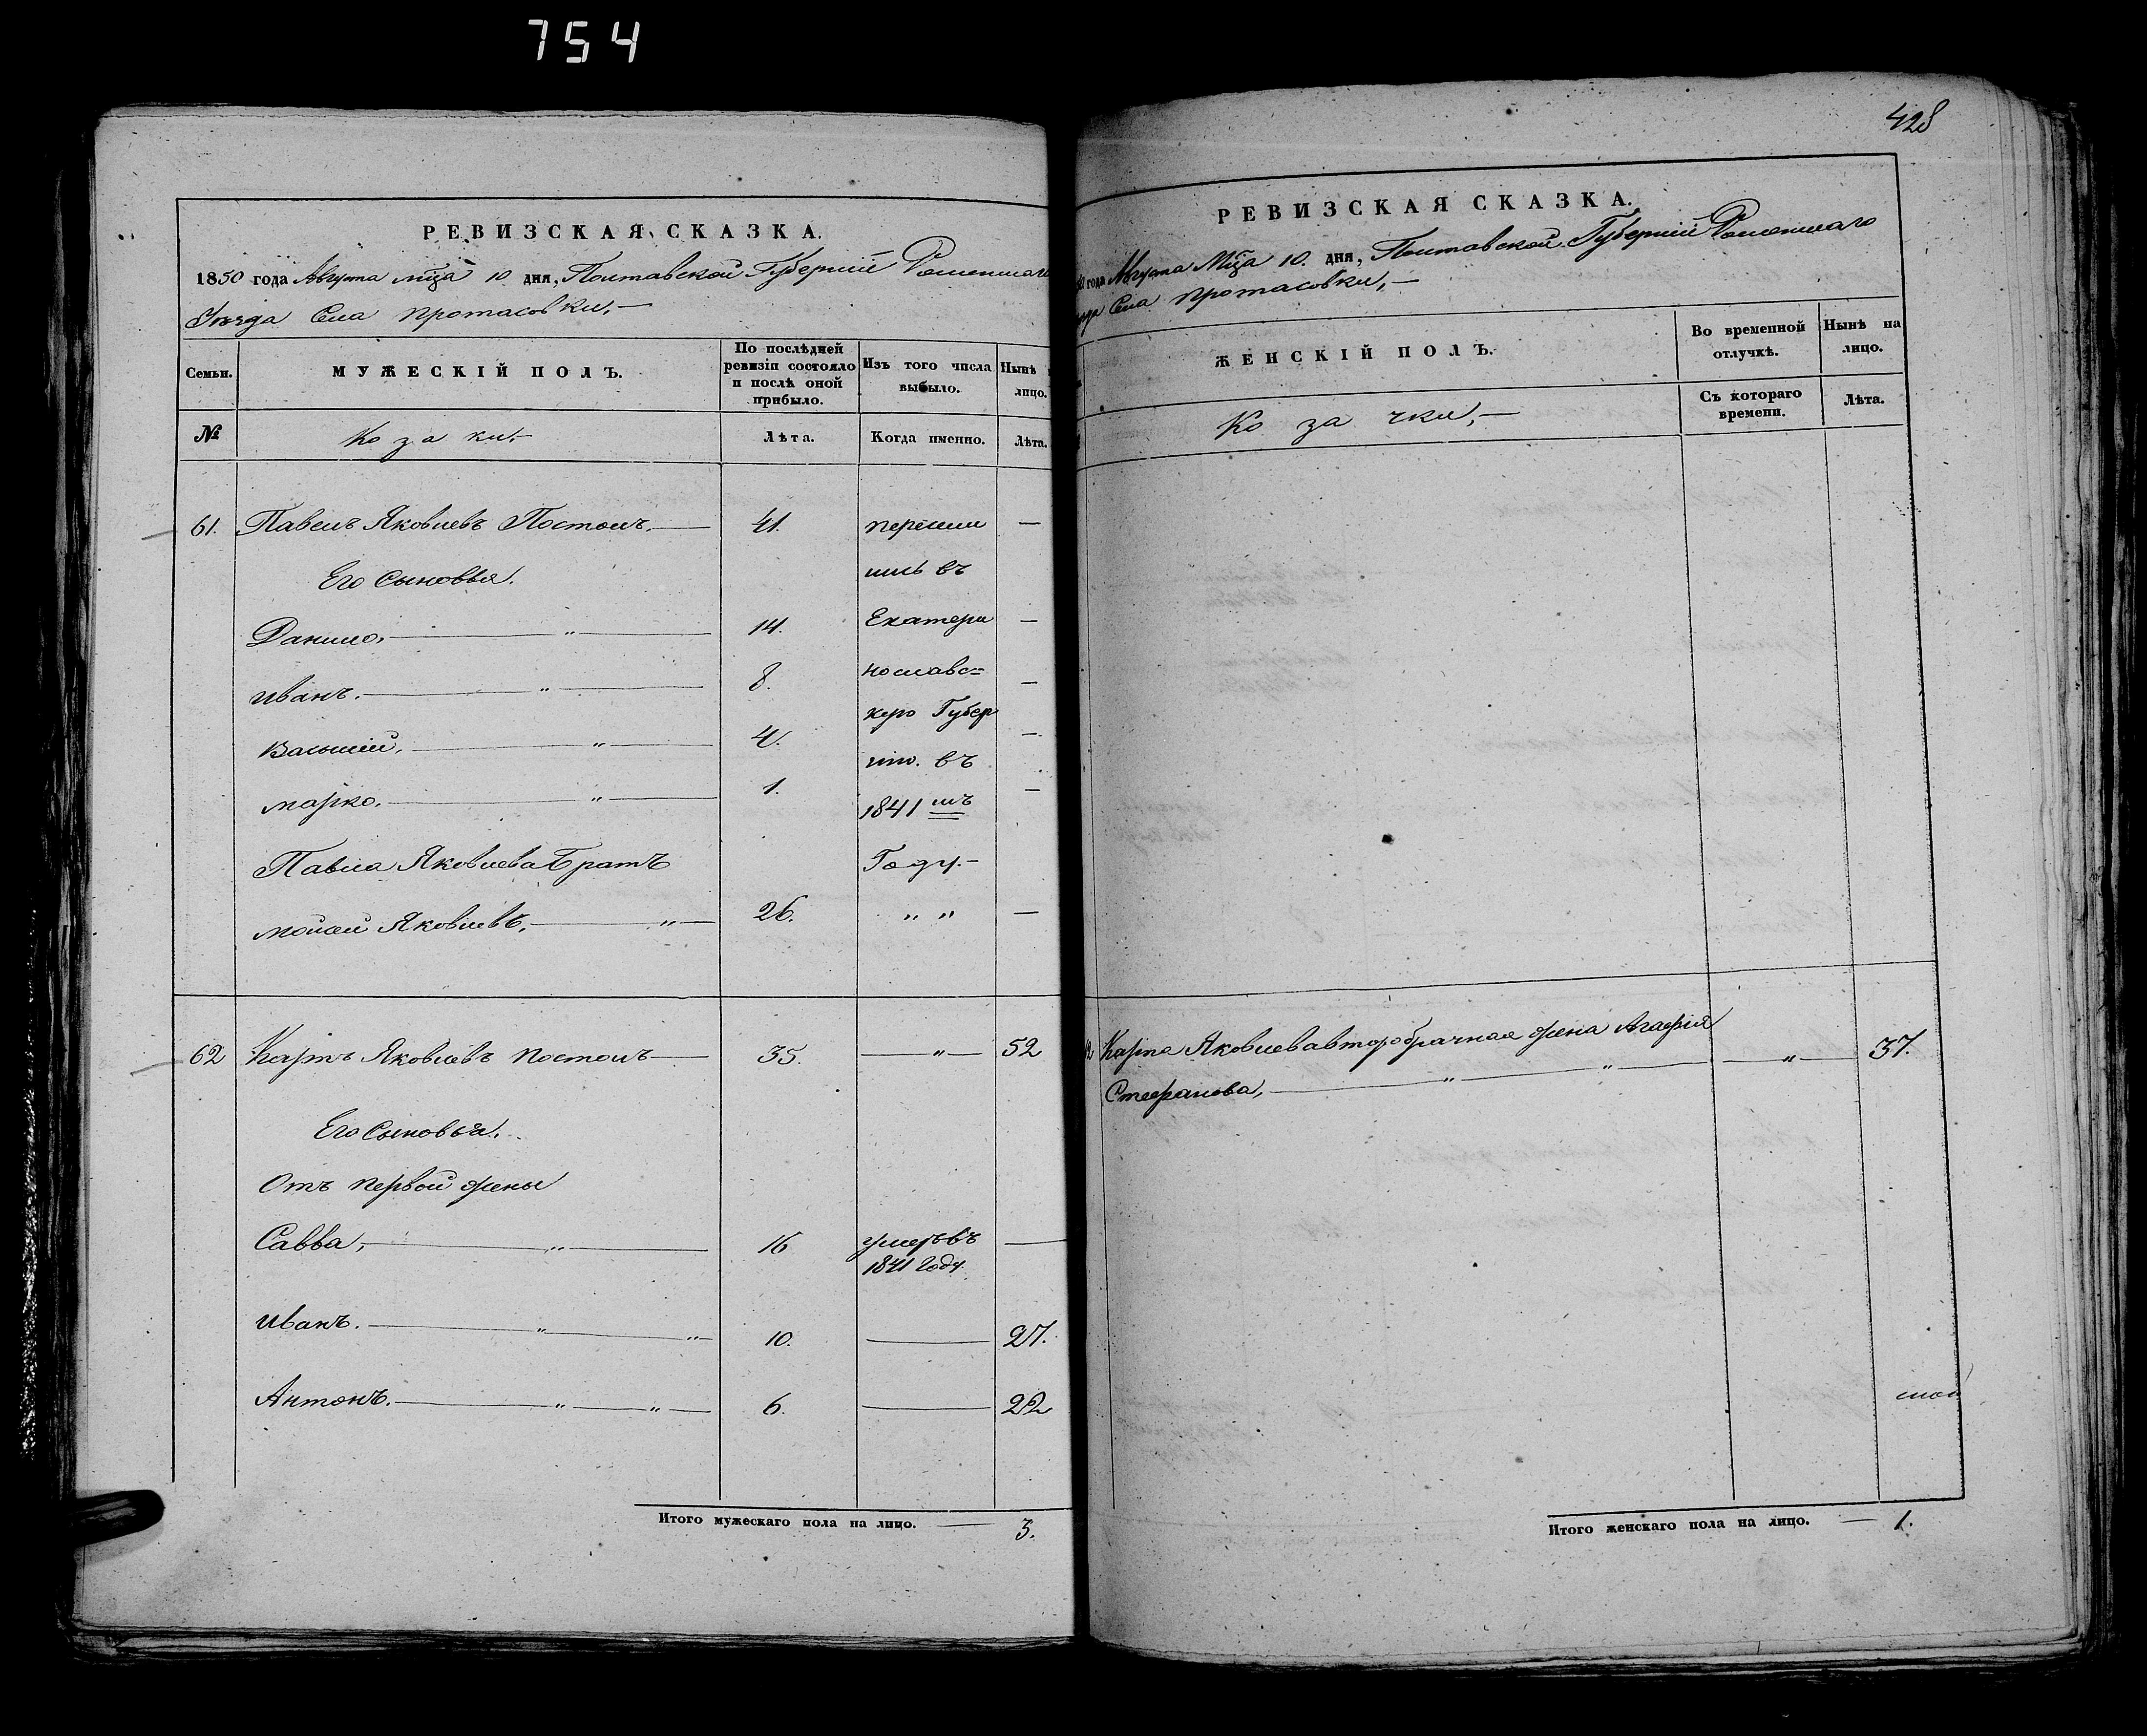 754
428
РЕВИЗСКАЯ СКАЗКА.
1850 года Августа мца 10 дня, Полтавской Губернии
Уезда Села Протасовки,
Семьи.
МУЖЕСКІЙ ПОЛЪ.
По послѣдней ревизіи состояло и послѣ оной прибыло.
Изъ того числа выбыло.
Нынѣ
лицо.
№
Козаки,
Лѣта.
Когда именно.
Лѣта.
61. Павелъ Яковлевъ Постолъ. 41. пересели
Его Сыновья. лись въ
Данило, 14. Екатери
Иванъ. 8. нославс=
кую Губер
Василий, 4. нію. въ
Марко, 1. 1841 мъ
Павла Яковлева Братъ Году.
Мойсей Яковлевъ, 26. " "
62 Карпъ Яковлевъ Постолъ 35. " 52
Его Сыновья.
Отъ первой жены
Савва, 16 умеръ въ
1841 году.
Иванъ. 10. 27.
Антонъ. 6. 22
Итого мужескаго пола на лицо. 3.
РЕВИЗСКАЯ СКАЗКА.
года Августа Мца 10. дня, Полтавской Губернии
Села Протасовки,
ЖЕНСКІЙ ПОЛЪ.
Во временной отлучкѣ.
Нынѣ на лицо.
Козачки,
Съ котораго времени.
Лѣта.
Карпа Яковлева второбрачная жена Агафия
Стефанова, " 37.
Итого женскаго пола на лицо. 1.